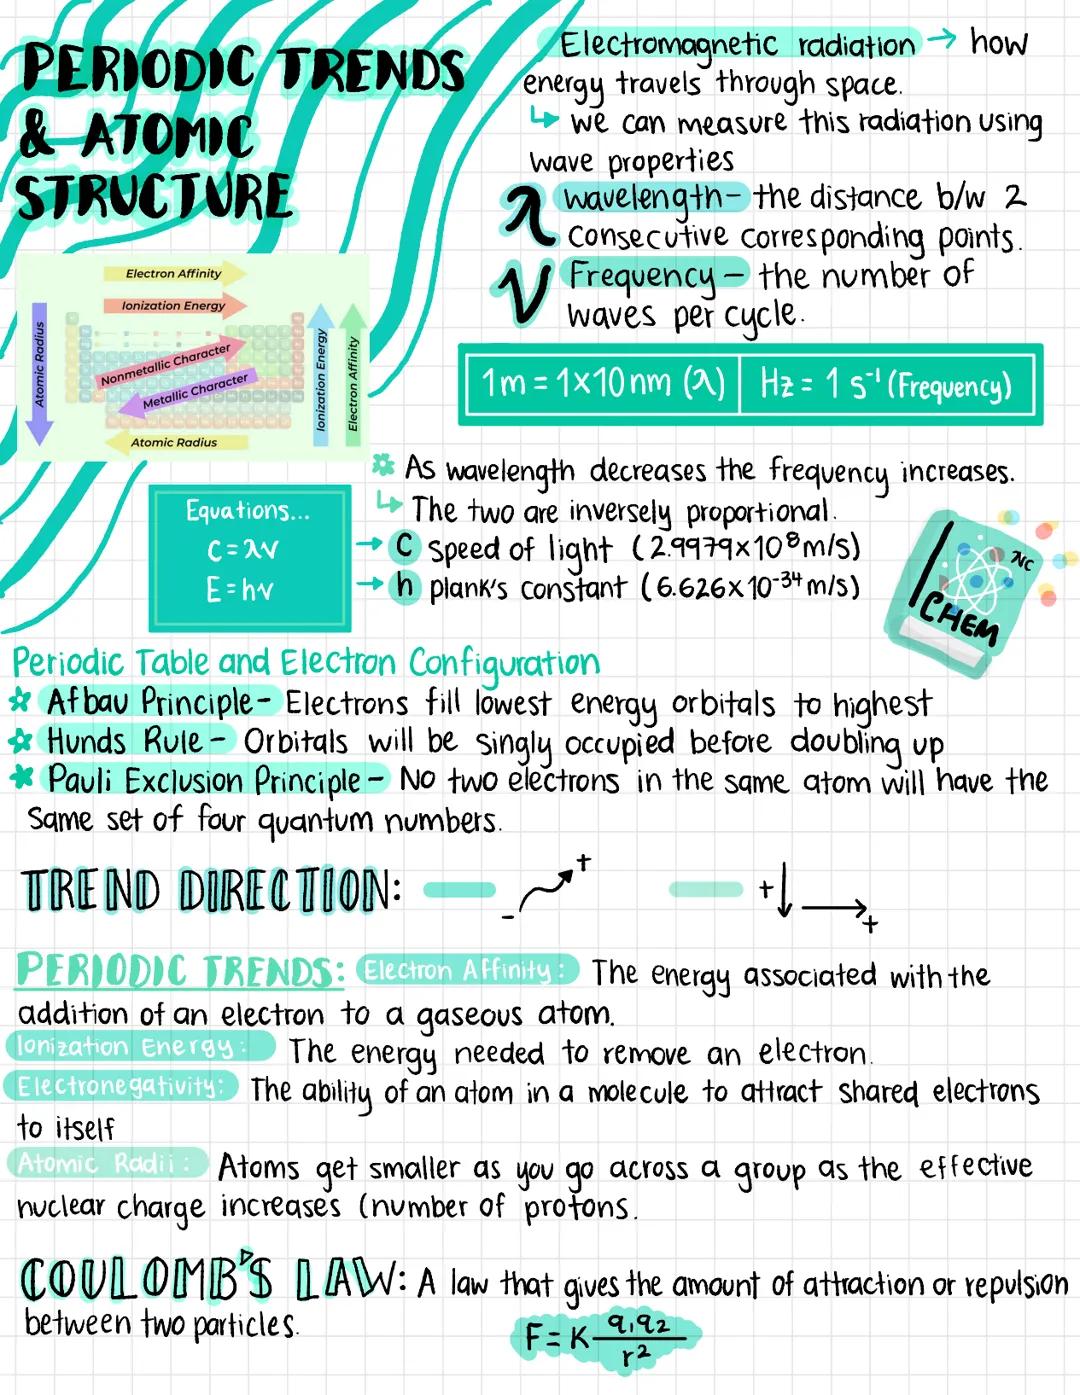 PERIODIC TRENDS
& ATOMIC
STRUCTURE
Electromagnetic radiation → how
energy travels through space.
↳ we can measure this radiation using
wave properties
λ wavelength- the distance b/w 2
consecutive corresponding points.
ν Frequency - the number of
waves per cycle.
1m = 1x10 nm (λ) | Hz = 1 s⁻¹ (Frequency)
Electron Affinity
Ionization Energy
Atomic Radius
Nonmetallic Character
Metallic Character
Ionization Energy
Electron Affinity
Atomic Radius
* As wavelength decreases the frequency increases.
↳ The two are inversely proportional.
Equations...
C = λν
E = hν
→ C speed of light (2.9979x10⁸ m/s)
→ h plank's constant (6.626x10⁻³⁴ m/s)
NC
CHEM
Periodic Table and Electron Configuration
* Afbau Principle- Electrons fill lowest energy orbitals to highest
* Hunds Rule- Orbitals will be singly occupied before doubling up
* Pauli Exclusion Principle- No two electrons in the same atom will have the
same set of four quantum numbers.
TREND DIRECTION: - + + +
PERIODIC TRENDS: Electron Affinity: The energy associated with the
addition of an electron to a gaseous atom.
Ionization Energy: The energy needed to remove an electron.
Electronegativity: The ability of an atom in a molecule to attract shared electrons
to itself
Atomic Radii: Atoms get smaller as you go across a group as the effective
nuclear charge increases (number of protons.
COULOMB'S LAW: A law that gives the amount of attraction or repulsion
between two particles.
F = K q₁q₂ / r²